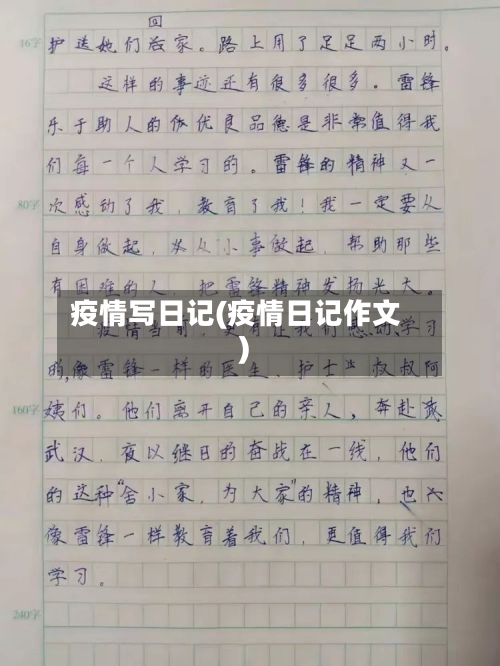 回
16字
护送她们返家。路上用了足足两小时。
这样的事迹还有很多很多。雷锋
乐于助人的优良品德是非常值得我
们每一个人学习的。雷锋的精神又一
80字
次感动了我,教育了我!我一定要从
自身做起,从小事做起,帮助那些
有困难的人,把雷锋精神发扬光大。
疫情写日记(疫情日记作文
)
疫情当前,更有让我们感动,学习
的,像雷锋一样的医生、护士 叔叔阿
160字
姨们。他们离开自己的亲人,奔赴
武汉,夜以继日的奋战在一线,他们
的这种“舍小家,为大家”的精神,也
像雷锋一样教育着我们,更值得我们
学习。
240字